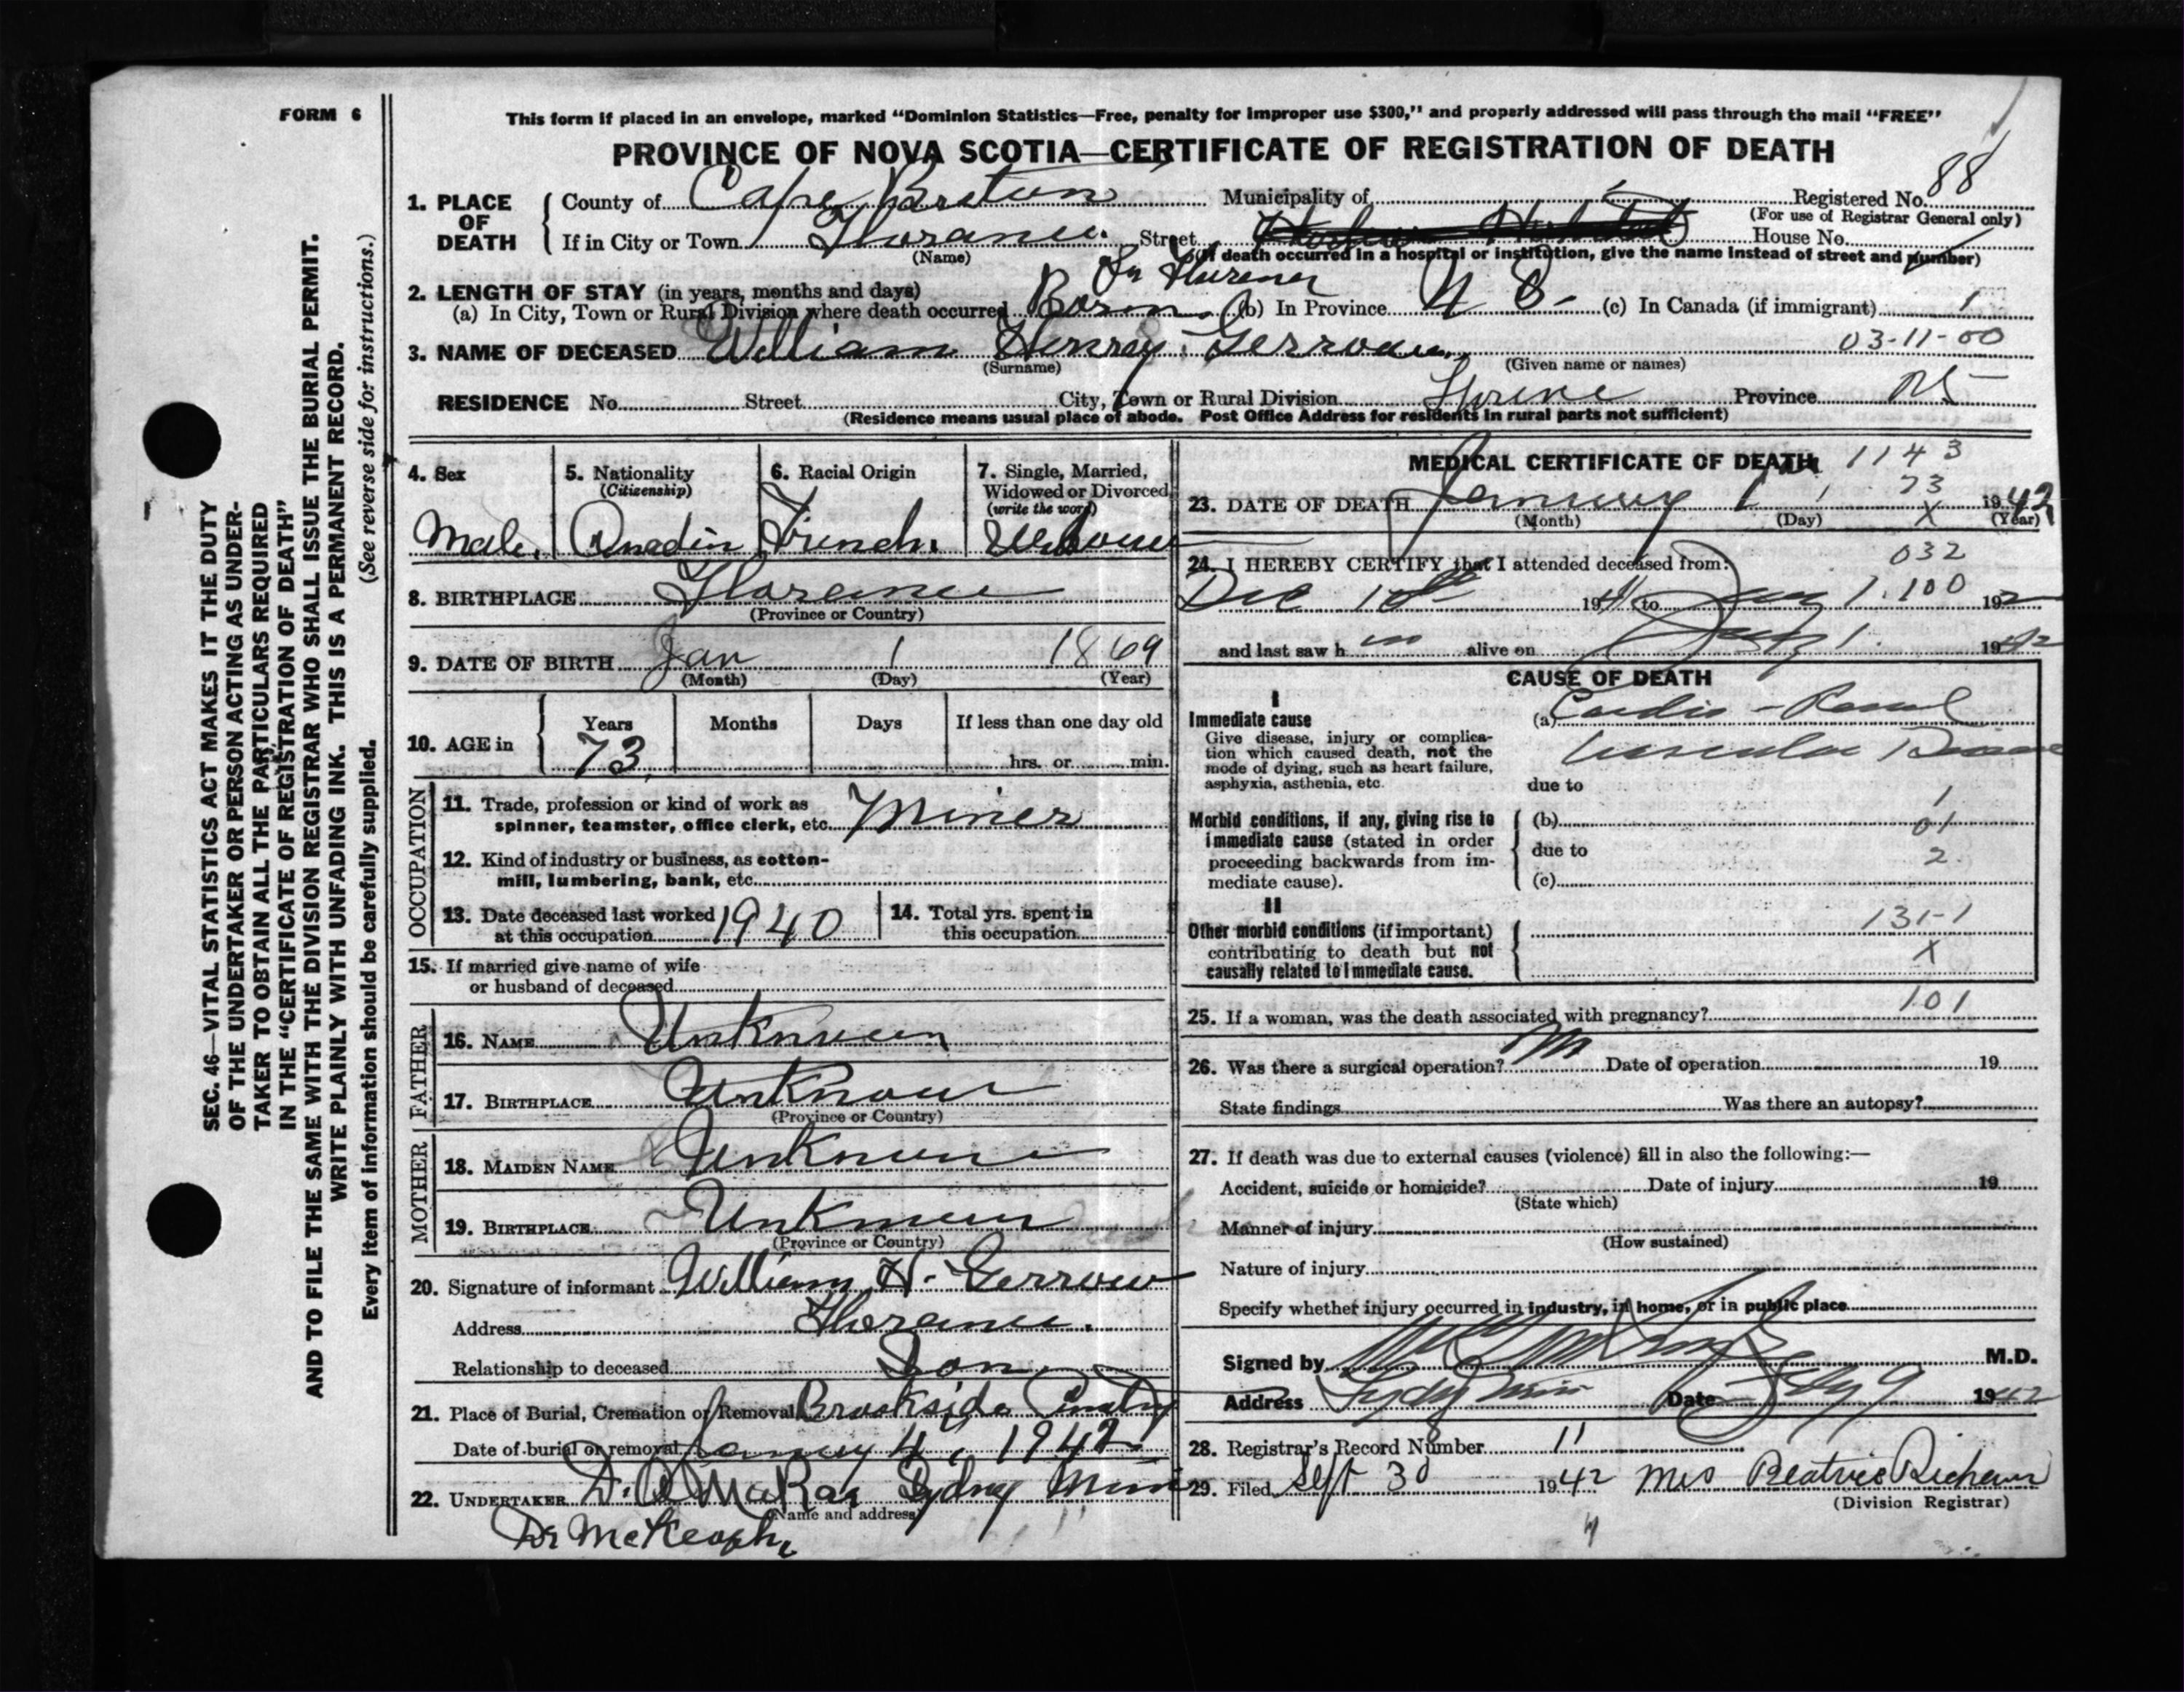 FORM 6
This form if placed in an envelope, marked "Dominion Statistics—Free, penalty for improper use $300," and properly addressed will pass through the mail "FREE"
PROVINCE OF NOVA SCOTIA—CERTIFICATE OF REGISTRATION OF DEATH
88
1. PLACE OF DEATH County of Cape Breton Municipality of Registered No.
(For use of Registrar General only)
If in City or Town Florence. Street House No.
(Name) (If death occurred in a hospital or institution, give the name instead of street and number)
In Florence
2. LENGTH OF STAY (in years, months and days)
(a) In City, Town or Rural Division where death occurred Born (b) In Province (c) In Canada (if immigrant)
3. NAME OF DECEASED William Henray Gerrow 03-11-00
(Surname) (Given name or names)
RESIDENCE No. Street City, Town or Rural Division Province NS
(Residence means usual place of abode. Post Office Address for residents in rural parts not sufficient)
4. Sex
5. Nationality
(Citizenship)
6. Racial Origin
7. Single, Married,
Widowed or Divorced
(write the word)
Male. Canadin French.
8. BIRTHPLACE Florence
(Province or Country)
9. DATE OF BIRTH Jan 1 1869
(Month) (Day) (Year)
10. AGE in Years Months Days If less than one day old
73 hrs. or min.
OCCUPATION
11. Trade, profession or kind of work as
spinner, teamster, office clerk, etc. Miner
12. Kind of industry or business, as cotton-
mill, lumbering, bank, etc.
13. Date deceased last worked
at this occupation 1940
14. Total yrs. spent in
this occupation
15. If married give name of wife
or husband of deceased
FATHER
16. NAME Unknown
17. BIRTHPLACE Unknown
(Province or Country)
MOTHER
18. MAIDEN NAME Unknown
19. BIRTHPLACE Unknown
(Province or Country)
20. Signature of informant William H. Gerrow
Address Florence.
Relationship to deceased Son
21. Place of Burial, Cremation or Removal Brookside
Date of burial or removal January 4, 1942
22. UNDERTAKER D. A. McRae Sydney Mines
(Name and address)
Dr McKeagh
MEDICAL CERTIFICATE OF DEATH 1143
73
23. DATE OF DEATH January 1 1942
(Month) (Day) X (Year)
032
24. I HEREBY CERTIFY that I attended deceased from:
Dec 10th 1941 to Jany 1. 100 192
and last saw h m alive on Jany 1. 1942
CAUSE OF DEATH
I
Immediate cause
Give disease, injury or complica-
tion which caused death, not the
mode of dying, such as heart failure,
asphyxia, asthenia, etc.
(a) Cardio-Renal
Vascular Disease
due to
1
Morbid conditions, if any, giving rise to
immediate cause (stated in order
proceeding backwards from im-
mediate cause).
(b) 01
due to 2
(c)
II
Other morbid conditions (if important)
contributing to death but not
causally related to immediate cause.
131-1
X
101
25. If a woman, was the death associated with pregnancy?
26. Was there a surgical operation? No Date of operation 19
State findings Was there an autopsy?
27. If death was due to external causes (violence) fill in also the following:—
Accident, suicide or homicide? Date of injury 19
(State which)
Manner of injury
(How sustained)
Nature of injury
Specify whether injury occurred in industry, in home, or in public place
Signed by M.D.
Address Sydney Mines Date 9 1942
28. Registrar's Record Number 11
29. Filed Sept 3d 1942 Mrs Beatrice
(Division Registrar)
SEC. 46—VITAL STATISTICS ACT MAKES IT THE DUTY
OF THE UNDERTAKER OR PERSON ACTING AS UNDER-
TAKER TO OBTAIN ALL THE PARTICULARS REQUIRED
IN THE "CERTIFICATE OF REGISTRATION OF DEATH"
AND TO FILE THE SAME WITH THE DIVISION REGISTRAR WHO SHALL ISSUE THE BURIAL PERMIT.
WRITE PLAINLY WITH UNFADING INK. THIS IS A PERMANENT RECORD.
(See reverse side for instructions.)
Every item of information should be carefully supplied.